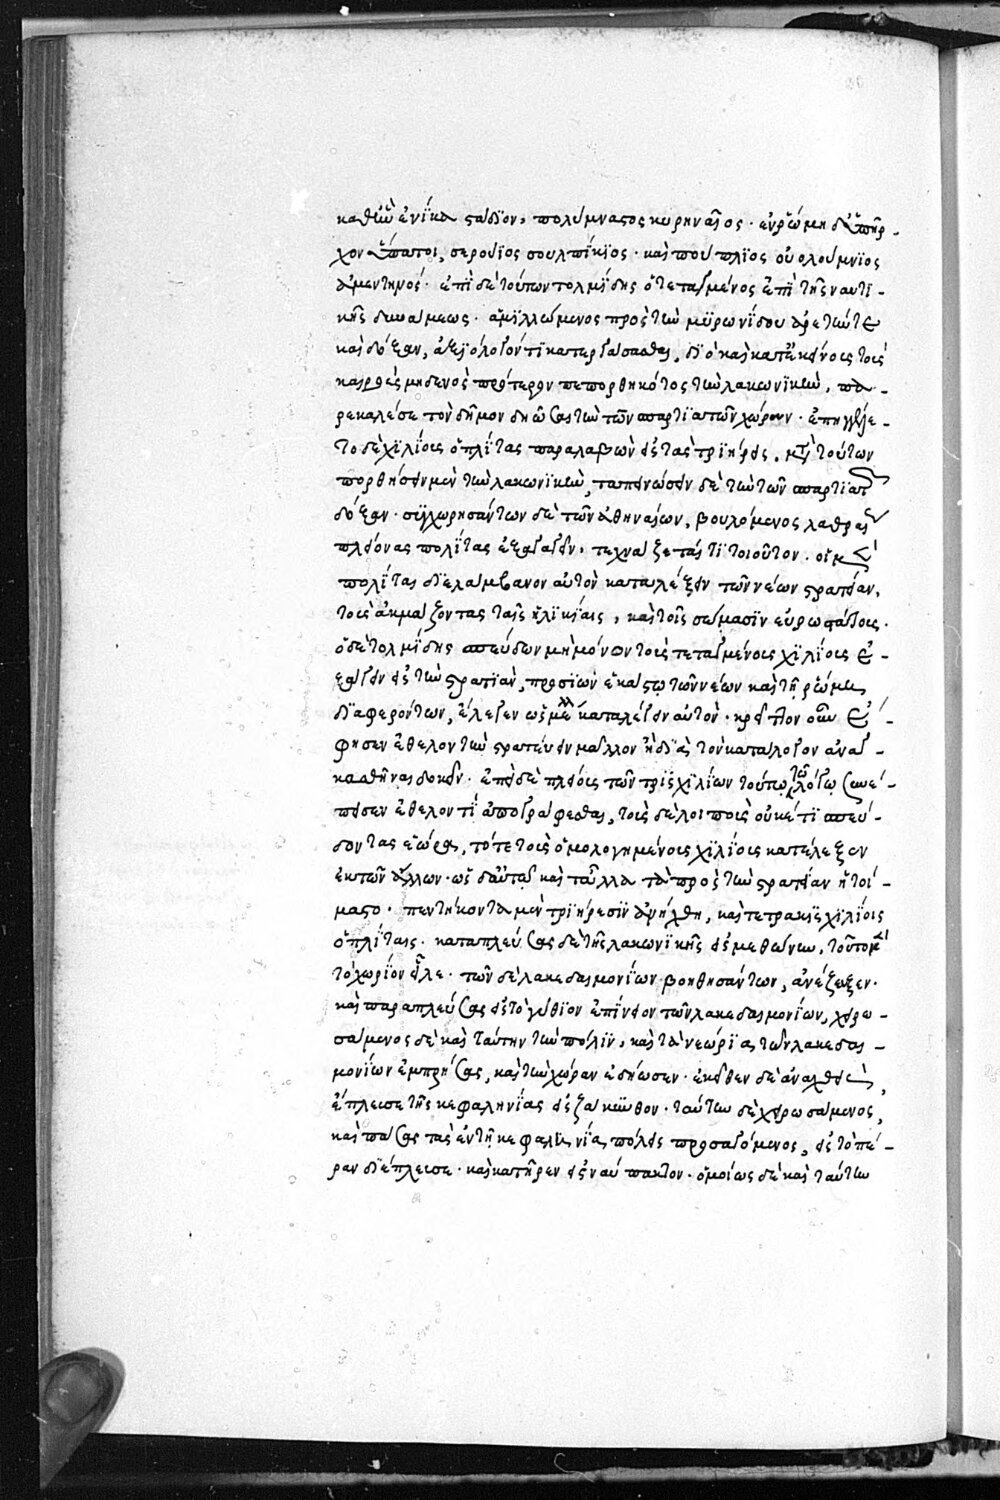 καθ' ἣν ἐνίκα στάδϊον, πολύμναστος κυρηναῖος· ἐν ῥώμῃ δ' ὑπῆρ-
χον ὕπατοι, σερούϊος σουλπίκϊος· καὶ πούπλϊος οὐολούμνϊος
ἀμεντηνός· ἐπὶ δὲ τούτων τολμίδης ὁ τεταγμένος ἐπὶ τῆς ναυτι-
κῆς δυνάμεως· ἁμιλλώμενος πρὸς τὴν μϋρωνίδου ἀρετήν τε
καὶ δόξαν, ἀξϊόλογόν τϊ κατεργάσασθαι, δϊὸ καὶ κατ' ἐκείνοις τοῖς
καιροῖς μηδενὸς πρότερον πεπορθηκότος τὴν λακωνϊκὴν, πα-
ρεκάλεσε τὸν δῆμον δηῶσαι τὴν τῶν σπαρτϊατῶν χώραν· ἐπηγγείλε-
το δὲ χϊλίοις ὁπλίτας παραλαβὼν εἰς τὰς τρϊήρεις, μετὰ τούτων
πορθήσειν μὲν τὴν λακωνϊκὴν, ταπεινώσειν δὲ τὴν τῶν σπαρτϊατῶν
δόξαν· συγχωρησάντων δὲ τῶν ἀθηναίων, βουλόμενος λάθρα
πλείονας πολίτας ἐξαγαγεῖν, τεχνάζεταί τϊ τοιοῦτον· οἱ μὲν
πολίται δϊελάμβανον αὐτὸν καταλέξειν τῶν νέων στρατείαν,
τοὺς ἀκμάζοντας ταῖς ἡλικίαις, καὶ τοῖς σώμασϊν εὐρωστάτοις·
ὁ δὲ τολμίδης σπεύδων μὴ μόνον τοὺς τεταγμένοις χϊλίοις ἐ-
ξαγαγεῖν εἰς τὴν στρατϊὰν, προσϊὼν ἑκάστῳ τῶν νέων καὶ τῇ ῥώμῃ
δϊαφερόντων, ἔλεγεν ὡς μέλλει καταλέγειν αὐτόν· κρεῖττον οὖν ἔ-
φησεν ἐθελοντὴν στρατεύειν μᾶλλον ἢ δϊὰ τὸν κατάλογον ἀναγ-
κασθῆναι δοκεῖν· ἐπεὶ δὲ πλείοις τῶν τρισχϊλίων τούτῳ τῷ λόγῳ συνέ-
πεισεν ἐθελοντὶ ἀπογράφεσθαι, τοὺς δὲ λοιποὺς οὐκέτϊ σπεύ-
δοντας ἑώρα, τότε τοὺς ὁμολογημένοις χϊλίοις κατέλεξεν
ἐκ τῶν ἄλλων· ὡς δ' αὐτῷ καὶ τἆλλα τὰ πρὸς τὴν στρατείαν ἡτοί-
μαστο· πεντήκοντα μὲν τρϊήρεσϊν ἀνήχθη, καὶ τετρακισχϊλίοις
ὁπλίταις· καταπλεύσας δὲ τῆς λακωνϊκῆς εἰς μεθώνην, τοῦτο μὲν
τὸ χωρίον εἷλε· τῶν δὲ λακεδαιμονίων βοηθησάντων, ἀνέζευξεν·
καὶ παραπλεύσας εἰς τὸ γύθϊον ἐπίνειον τῶν λακεδαιμονίων, χειρω-
σάμενος δὲ καὶ ταύτην τὴν πόλϊν, καὶ τὰ νεώρϊα τῶν λακεδαι-
μονίων ἐμπρήσας, καὶ τὴν χώραν ἐδήωσεν· ἐκεῖθεν δὲ ἀναχθεὶς
ἔπλευσε τῆς κεφαληνίας εἰς ζάκυνθον· ταύτην δὲ χειρωσάμενος,
καὶ πάσας τὰς ἐν τῇ κεφαληνίᾳ πόλεις προσαγόμενος, εἰς τὸ πέ-
ραν δϊέπλευσε· καὶ κατῆρεν εἰς ναύπακτον· ὁμοίως δὲ καὶ ταύτην